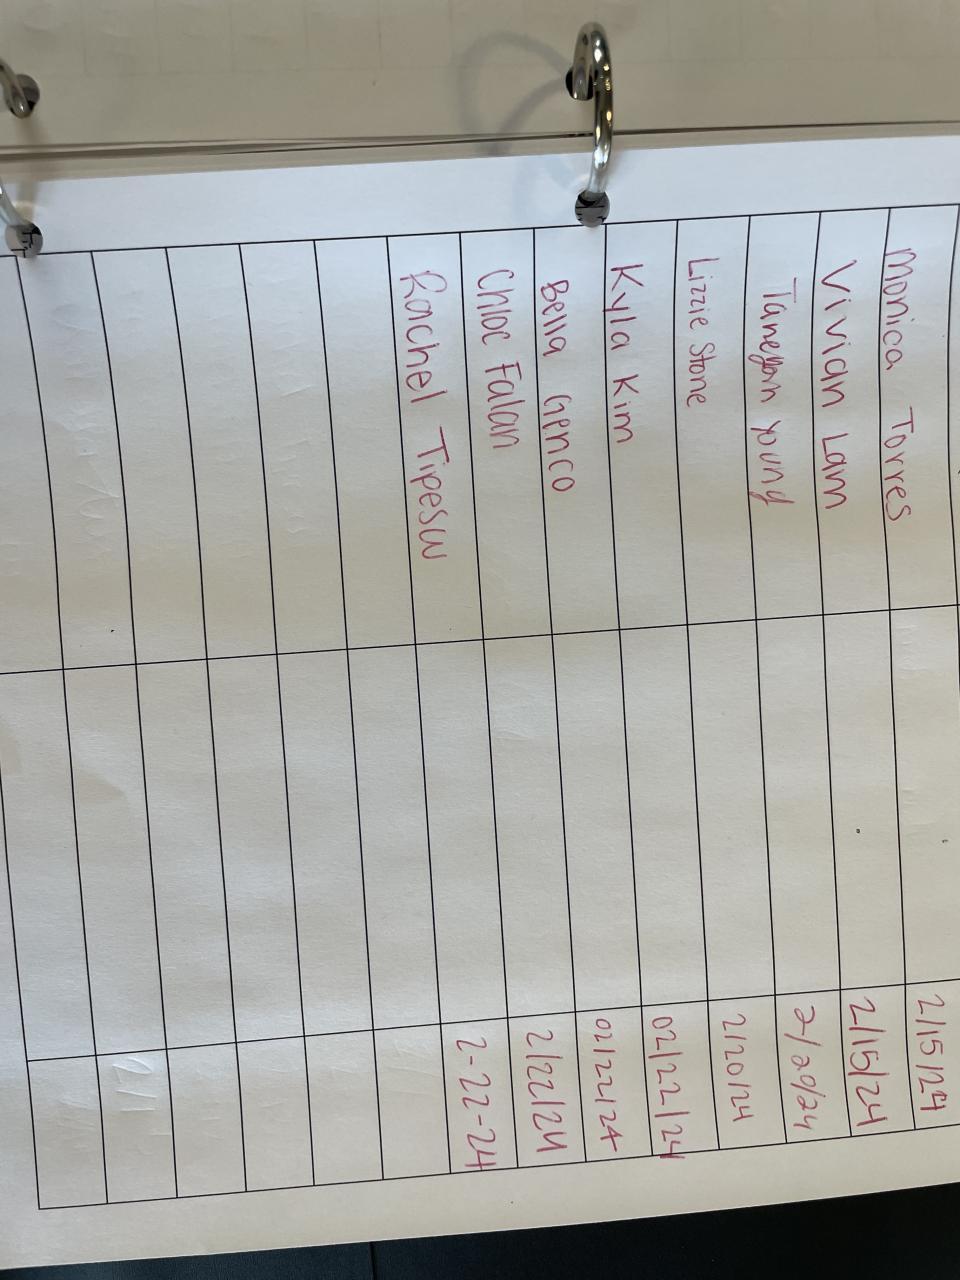 Monica Torres 2/15/24
Vivian Lam 2/15/24
Young 2/20/24
Lizzie Stone 2/20/24
Kyla Kim 02/22/24
Bella Genco 02/22/24
Chloe Falan 2/22/24
Rachel 2-22-24